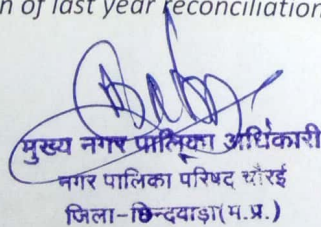 n of last year reconciliation
मुख्य नगर पालिका अधिकारी
नगर पालिका परिषद चौरई
जिला-छिन्दवाड़ा(म.प्र.)